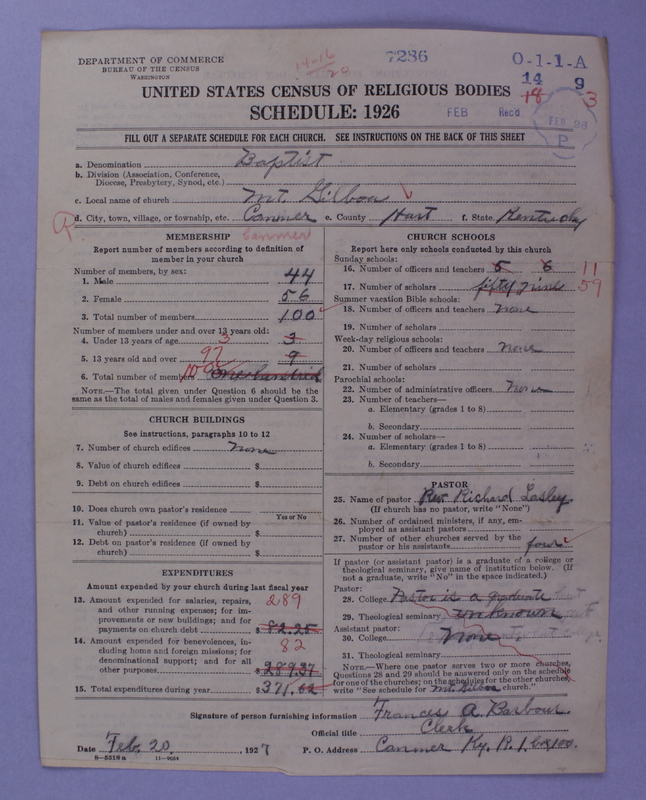 DEPARTMENT OF COMMERCE
BUREAU OF THE CENSUS
WASHINGTON
14-16
20
7286
O-1-1-A
14 9
18 3
UNITED STATES CENSUS OF RELIGIOUS BODIES
SCHEDULE: 1926
FEB Recd
FEB 26
P
FILL OUT A SEPARATE SCHEDULE FOR EACH CHURCH. SEE INSTRUCTIONS ON THE BACK OF THIS SHEET
a. Denomination Baptist
b. Division (Association, Conference, Diocese, Presbytery, Synod, etc.)
c. Local name of church Mt. Gilboa
d. City, town, village, or township, etc. Canmer e. County Hart f. State Kentucky
R
Canmer
MEMBERSHIP
Report number of members according to definition of
member in your church
Number of members, by sex:
1. Male 44
2. Female 56
3. Total number of members 100
Number of members under and over 13 years old:
4. Under 13 years of age 3 3
5. 13 years old and over 97 9
6. Total number of members 100 one hundred
NOTE.—The total given under Question 6 should be the
same as the total of males and females given under Question 3.
CHURCH BUILDINGS
See instructions, paragraphs 10 to 12
7. Number of church edifices none
8. Value of church edifices $
9. Debt on church edifices $
10. Does church own pastor's residence
Yes or No
11. Value of pastor's residence (if owned by
church) $
12. Debt on pastor's residence (if owned by
church) $
EXPENDITURES
Amount expended by your church during last fiscal year
13. Amount expended for salaries, repairs,
and other running expenses; for im-
provements or new buildings; and for
payments on church debt 289 $ 82.25
14. Amount expended for benevolences, in-
cluding home and foreign missions; for
denominational support; and for all
other purposes 82 $ 289.37
15. Total expenditures during year $ 371.62
CHURCH SCHOOLS
Report here only schools conducted by this church
Sunday schools:
16. Number of officers and teachers 5 6 11
17. Number of scholars fifty nine 59
Summer vacation Bible schools:
18. Number of officers and teachers none
19. Number of scholars
Week-day religious schools:
20. Number of officers and teachers none
21. Number of scholars
Parochial schools:
22. Number of administrative officers none
23. Number of teachers—
a. Elementary (grades 1 to 8)
b. Secondary
24. Number of scholars—
a. Elementary (grades 1 to 8)
b. Secondary
PASTOR
25. Name of pastor Rev. Richard Lasley
(If church has no pastor, write "None")
26. Number of ordained ministers, if any, em-
ployed as assistant pastors
27. Number of other churches served by the
pastor or his assistants four
If pastor (or assistant pastor) is a graduate of a college or
theological seminary, give name of institution below. (If
not a graduate, write "No" in the space indicated.)
Pastor:
28. College Pastor is a graduate but
29. Theological seminary unknown
Assistant pastor:
30. College None
31. Theological seminary
NOTE.—Where one pastor serves two or more churches,
Questions 28 and 29 should be answered only on the schedule
for one of the churches; on the schedules for the other churches,
write "See schedule for Mt. Gilboa church."
Signature of person furnishing information Frances A. Barbour
Official title Clerk
Date Feb. 20, 1927 P. O. Address Canmer Ky. R. 1 box 100.
8—5519a 11—9064